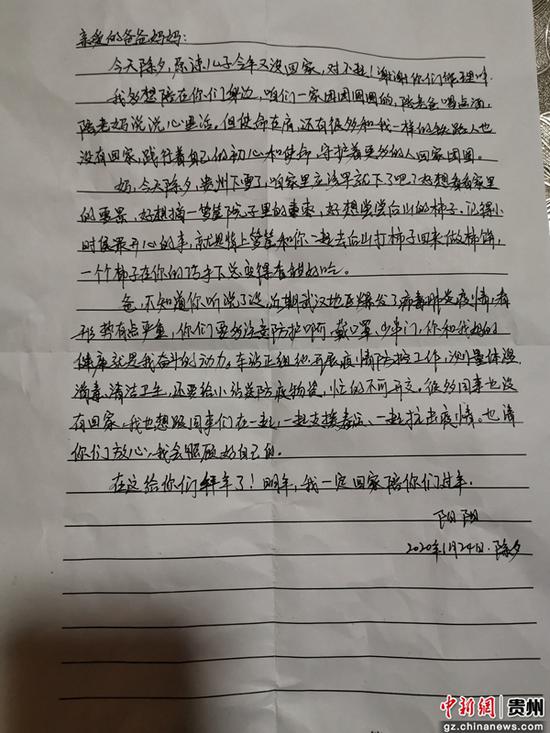 亲爱的爸爸妈妈:
今天除夕,原谅儿子今年又没回家,对不起!谢谢你们能理解。
我多想陪在你们身边,咱们一家团团圆圆的,陪老爸喝点酒,
陪老妈说说心里话。但使命在肩,还有很多和我一样的铁路人也
没有回家,践行着自己的初心和使命,守护着更多的人回家团圆。
妈,今天除夕,贵州下雪了,咱家里应该早就下了吧?好想看看家里
的雪景,好想摘一筐筐院子里的枣枣,好想尝尝后山的柿子。记得小
时候最开心的事,就是背上筐筐和你一起去后山打柿子回来做柿饼,
一个柿子在你的巧手下总变得香甜好吃。
爸,不知道你听说了没,近期武汉地区爆发了病毒肺炎疫情,
形势有点严重,你们要多注意防护啊,戴口罩,少串门,你和我妈的
健康就是我奋斗的动力。车站正组织开展疫情防控工作,测量体温
消毒、清洁卫生,还要给小站送防疫物资,忙的不可开交。很多同事也没
有回家,我也想跟同事们在一起,一起支援春运、一起抗击疫情。也请
你们放心,我会照顾好自己的。
在这给你们拜年了!明年,我一定回家陪你们过年。
阳阳
2020年1月24日·除夕
中新网 贵州
gz.chinanews.com